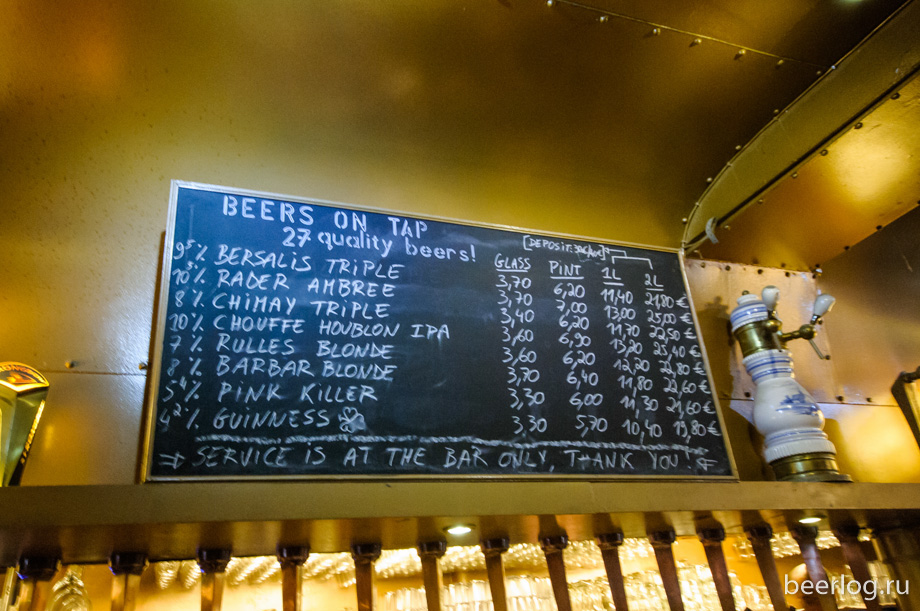 BEERS ON TAP
27 quality beers!
GLASS PINT 1L 2L
9,5% BERSALIS TRIPLE 3,70 6,20 11,40 21,80€
10,5% RADER AMBREE 3,70 7,00 13,00 25,00€
8% CHIMAY TRIPLE 3,40 6,20 11,70 22,50€
10% CHOUFFE HOUBLON IPA 3,60 6,90 13,20 25,40€
7% RULLES BLONDE 3,60 6,20 12,20 22,80€
8% BARBAR BLONDE 3,70 6,40 11,80 22,60€
5,4% PINK KILLER 3,30 6,00 11,30 21,60€
4,2% GUINNESS 3,30 5,70 10,40 19,80€
→ SERVICE IS AT THE BAR ONLY, THANK YOU! ←
beerlog.ru